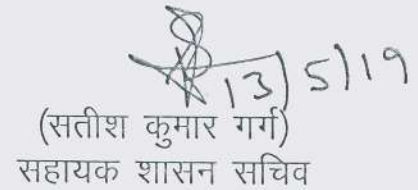 13/5/19
(सतीश कुमार गर्ग)
सहायक शासन सचिव